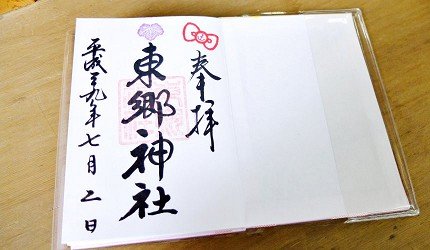 奉拝
東郷神社
平成二九年七月二日